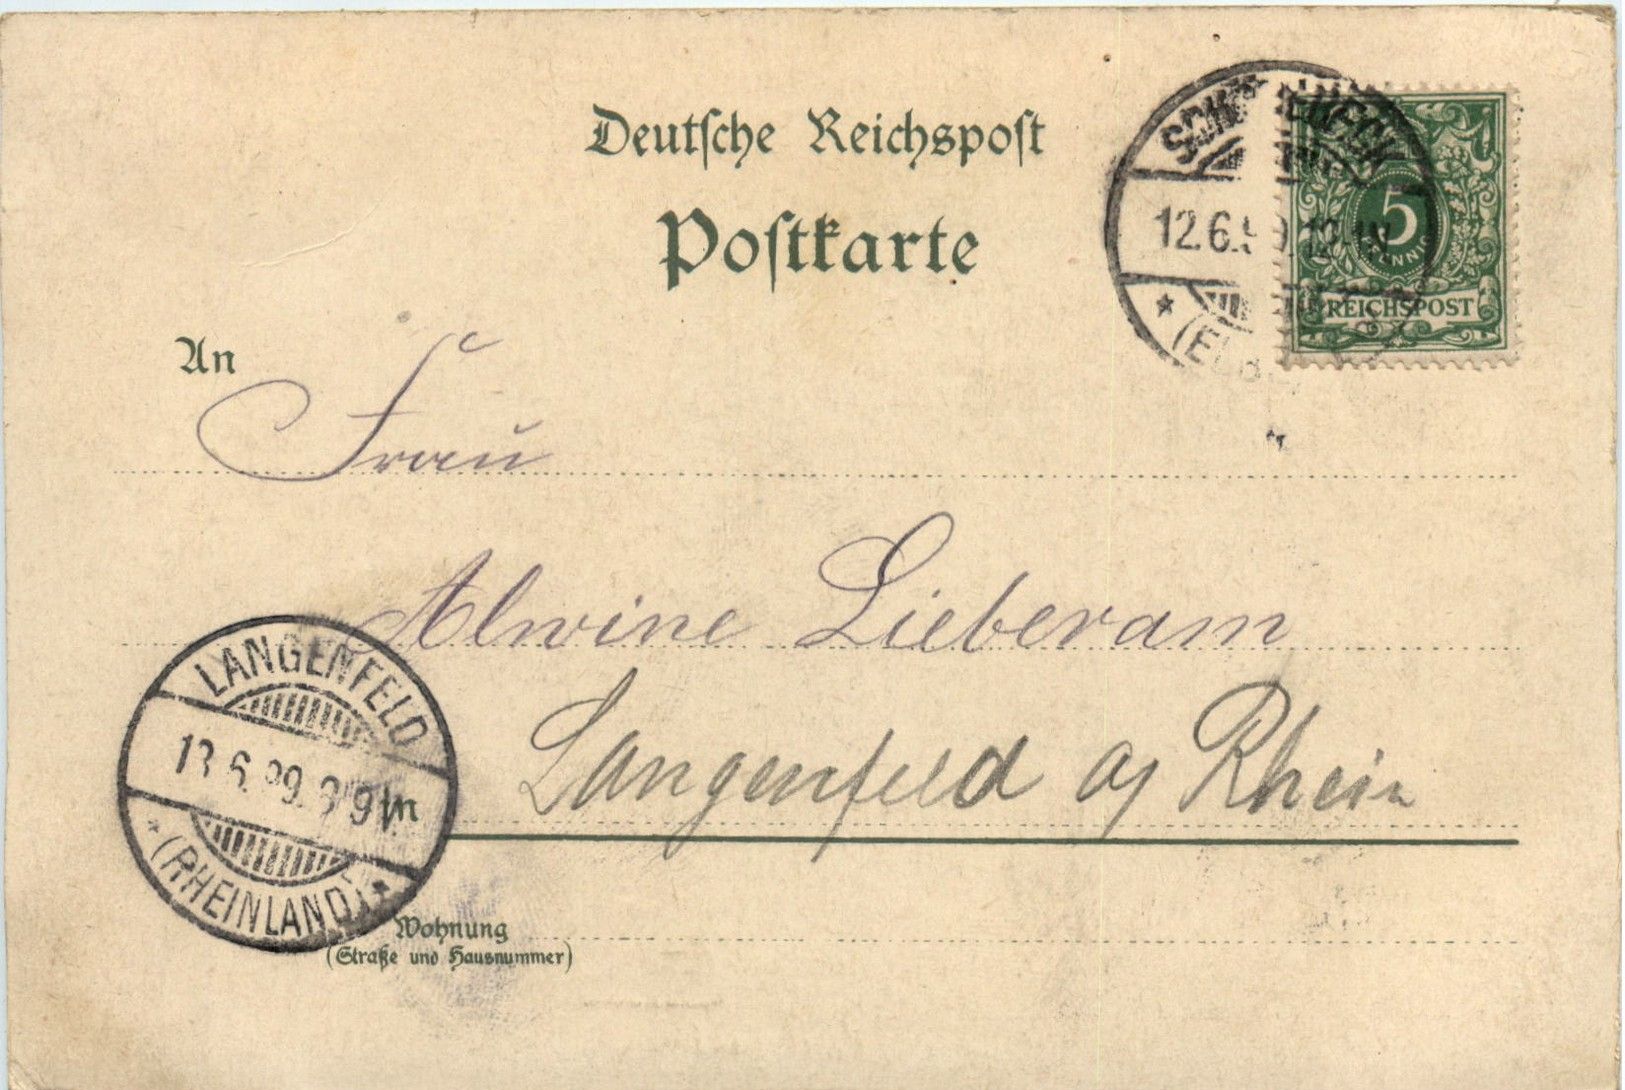 Deutsche Reichspost
Postkarte
12.6.99. 12-1N
5
PFENNIG
REICHSPOST
An
Frau
Alwine Lieberam
LANGENFELD
(RHEINLAND)
in Langenfeld a/ Rhein
Wohnung
(Straße und Hausnummer)